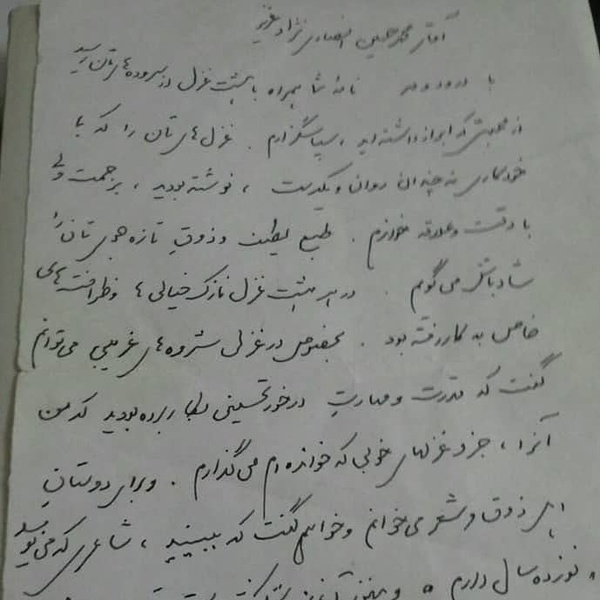 آقای محمدحسین انصاری نژاد عزیز
با درود و مهر نامهٔ شما همراه با هشت غزل از سروده‌های تان رسید
از محبتی که ابراز داشته اید ، سپاسگزارم . غزل‌های تان را که با
خودکاری نه چندان روان و یکدست ، نوشته بودید ، به زحمت ولی
با دقت و علاقه خواندم . طبع لطیف و ذوق تازه جوی تان را
شادباش می گویم . در هر هشت غزل نازک خیالی ها و ظرافت های
خاصی به کار رفته بود . بخصوص در غزل شروه های غریبی می توانم
گفت که قدرت و مهارتِ درخور تحسینی بکار برده بودید که من
آنرا ، جزو غزلهای خوبی که خوانده ام می گذارم . و برای دوستانِ
اهل ذوق و شعر می خوانم و خواهم گفت که ببینید ، شاعری که می نویسد
نوزده سال دارم